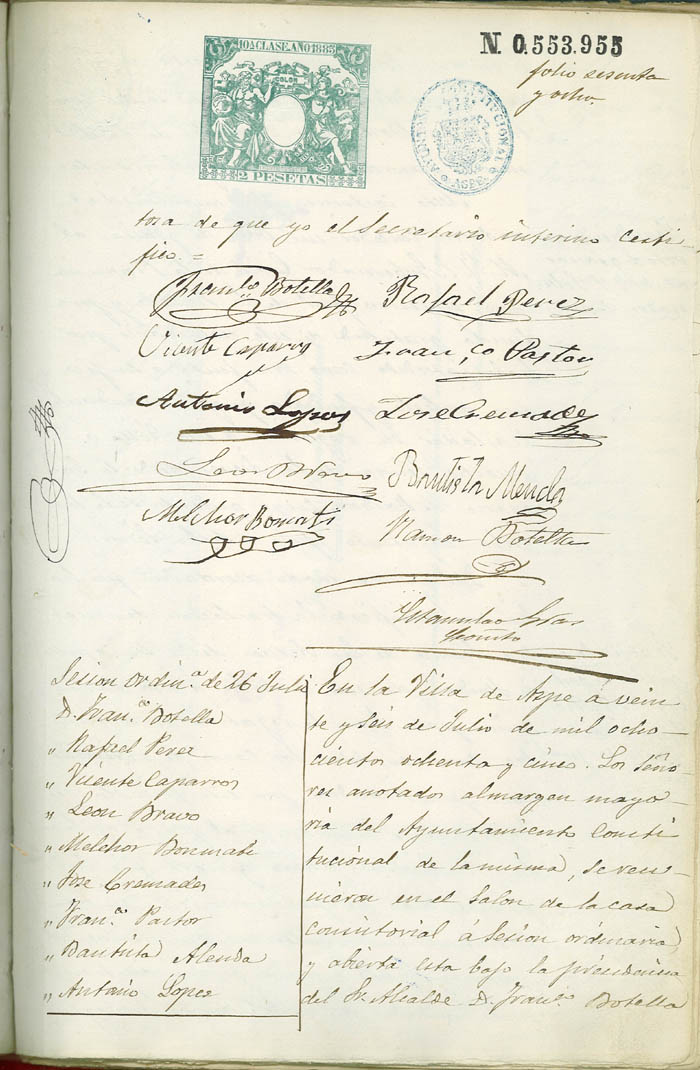 10A CLASE. AÑO 1885
COLON
2 PESETAS
N. 0.553.955
folio sesenta
y ocho.
AYUNTAMIENTO CONSTITUCIONAL
ASPE
tora de que yo el Secretario interino certi-
fico. =
Franco. Botella
Rafael Perez
Vicente Caparros
Franco Pastor
Antonio Lopez
Jose Cremades
Leon Bravo
Bautista Alenda
Melchor Bonmati
Ramon Botella
Estanislao
Sesion ordina. de 26 Julio
D. Franco. Botella
" Rafael Perez
" Vicente Caparros
" Leon Bravo
" Melchor Bonmati
" Jose Cremades
" Franco. Pastor
" Bautista Alenda
" Antonio Lopez
En la Villa de Aspe á vein-
te y seis de Julio de mil ocho-
cientos ochenta y cinco. Los Seño-
res anotados al margen mayo-
ria del Ayuntamiento Consti-
tucional de la misma, se reu-
nieron en el Salon de la casa
consistorial á Sesion ordinaria,
y abierta esta bajo la presidencia
del Sr. Alcalde D. Franco. Botella